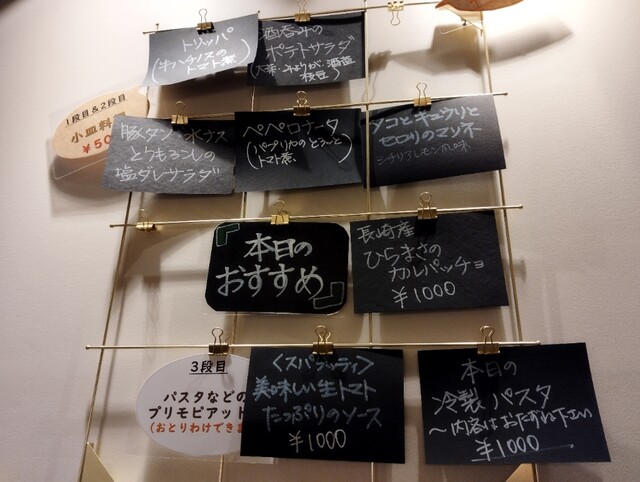 トリッパ
(牛ハチノスの
トマト煮)
酒呑みの
ポテトサラダ
(大葉・みょうが・酒盗
枝豆)
1段目&2段目
小皿料
¥50
豚タン 水ナス
とうもろこしの
塩ダレサラダ
ペペロナータ
(パプリカのとろ〜っと
トマト煮)
タコとキュウリと
セロリのマリネ
シチリアレモン風味
本日の
おすすめ
長崎産
ひらまさの
カルパッチョ
¥1000
3段目
パスタなどの
プリモピアット
(おとりわけできま
〈スパゲッティ〉
美味しい生トマト
たっぷりのソース
¥1000
本日の
冷製パスタ
〜内容はおたずね下さい
¥1000